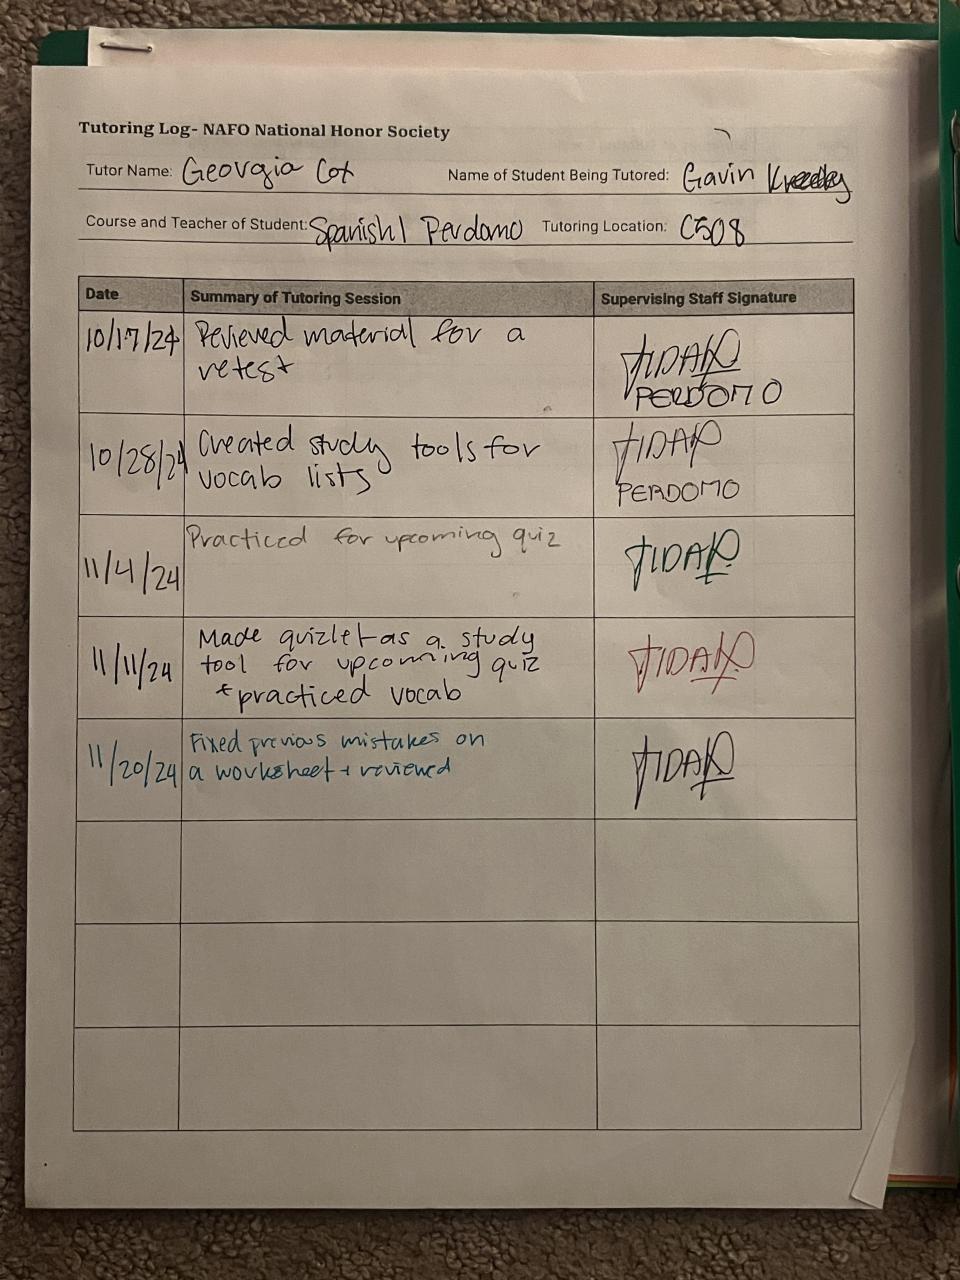 Tutoring Log- NAFO National Honor Society
Tutor Name: Georgia Cox Name of Student Being Tutored: Gavin
Course and Teacher of Student: Spanish 1 Perdomo Tutoring Location: C508
Date Summary of Tutoring Session Supervising Staff Signature
10/17/24 Revieved material for a
retest
PERDOMO
10/28/24 Created study tools for
vocab lists
PERDOMO
Practiced for upcoming quiz
11/4/24
Made quizlet as a study
11/11/24 tool for upcoming quiz
+ practiced vocab
Fixed previous mistakes on
11/20/24 a worksheet + reviewed